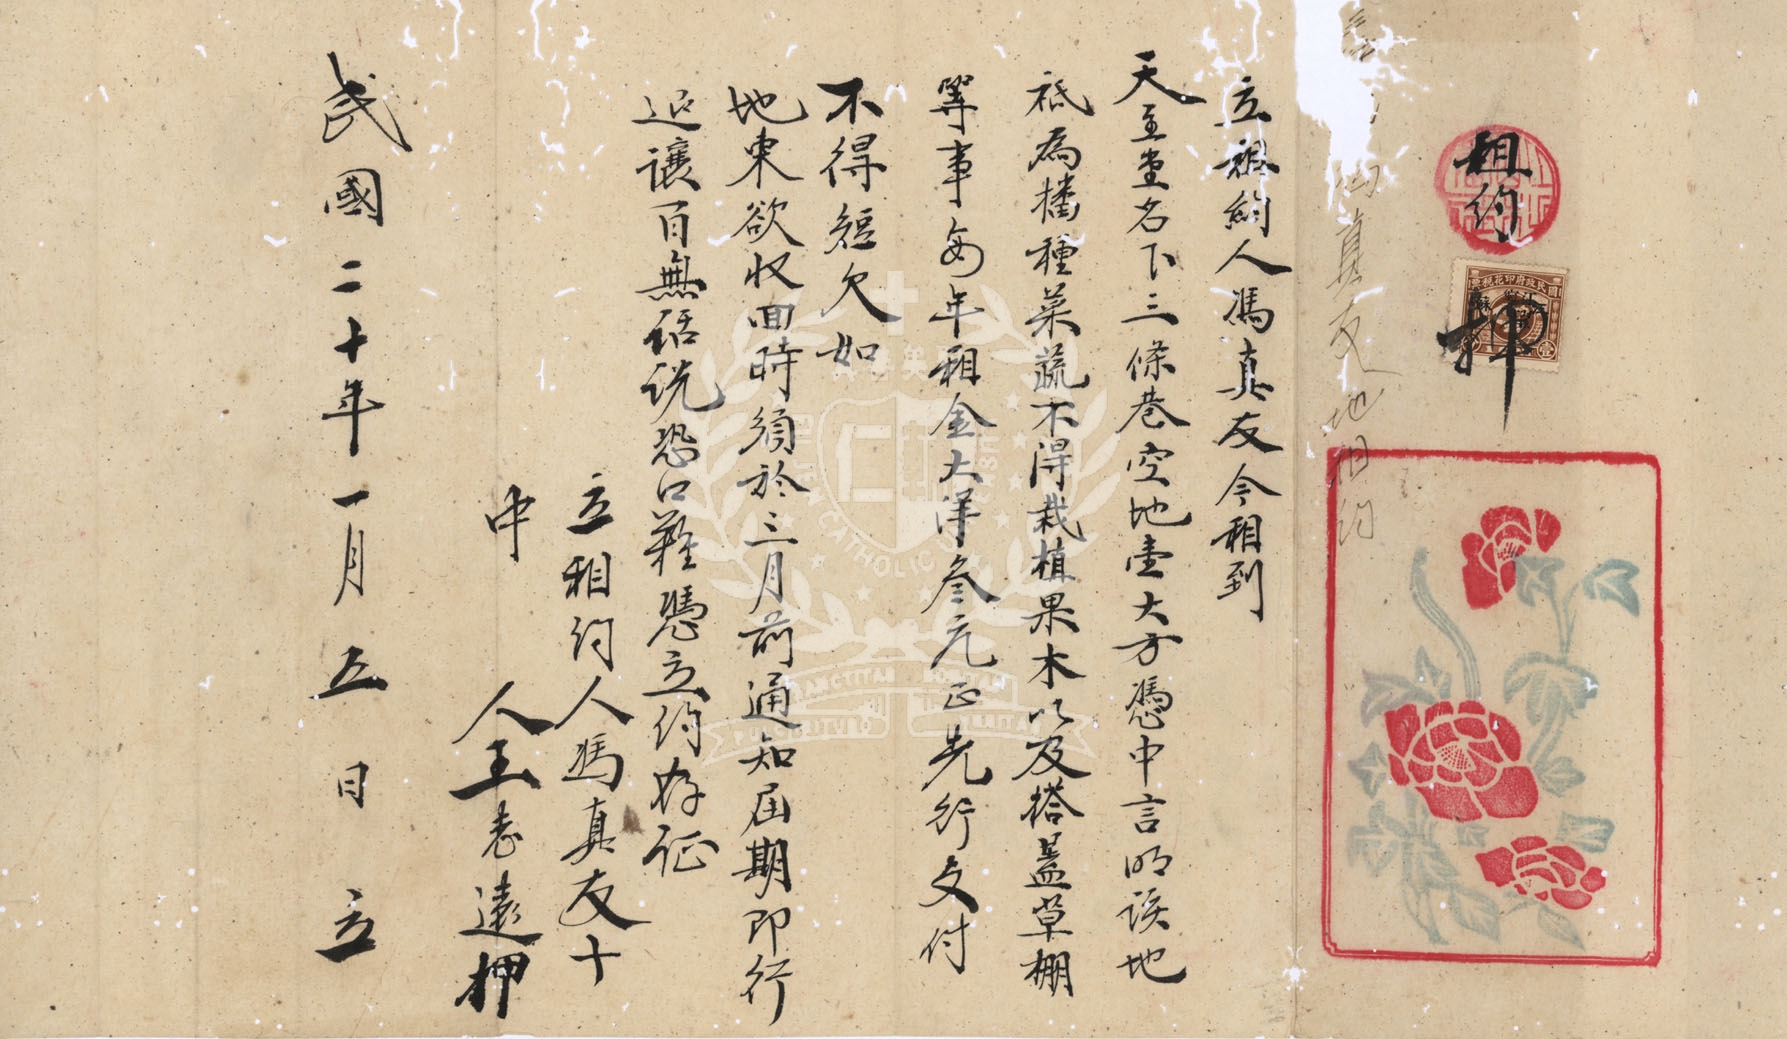 租約
押
國民政府印花稅票
馮真友地租約
立租約人馮真友今租到
天主堂名下三條巷空地壹大方憑中言明該地
祗為播種菜蔬不得栽植果木以及搭蓋草棚
等事每年租金大洋叁元正先行交付
不得短欠如
地東欲收回時須於三月前通知屆期即行
迟讓百無話說恐口難憑立約存証
立租約人馮真友十
中 人王志遠押
民國二十年一月五日立
CATHOLIC